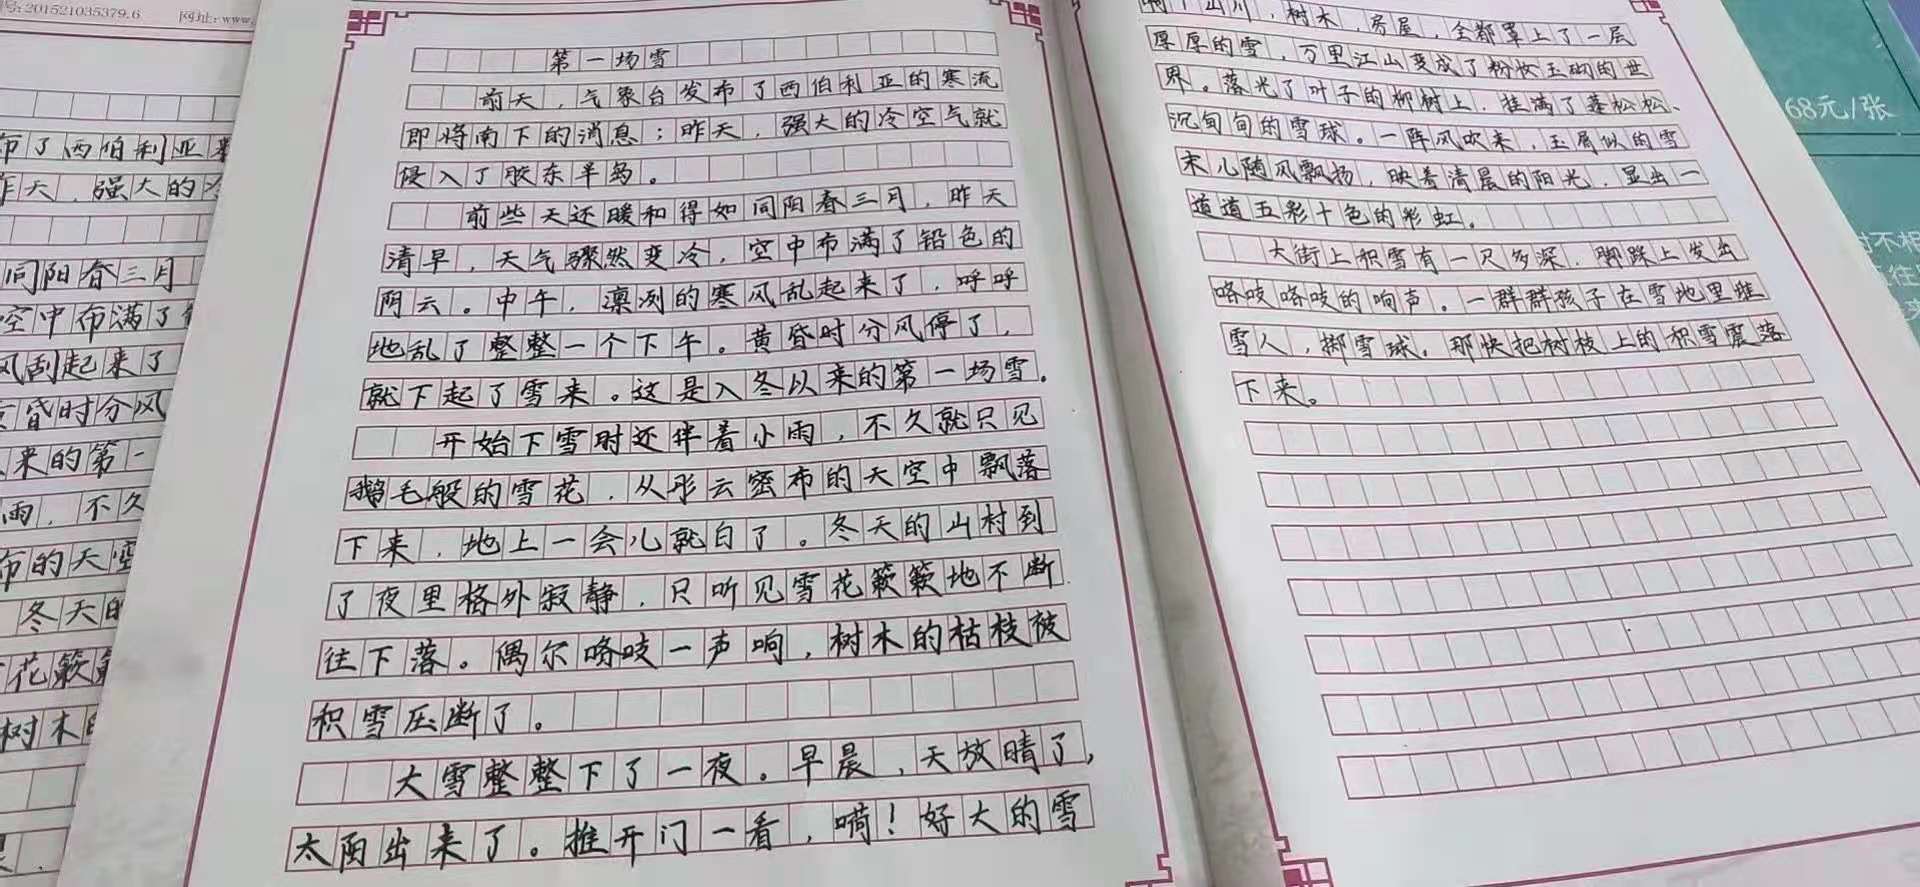 号:201521035379.6 网址:www.
布了西伯利亚寒
昨天，强大的冷
同阳春三月
空中布满了
风刮起来了
黄昏时分风
来的第一
雨，不久
布的天空
冬天的
花簌
树木的
第一场雪
前天，气象台发布了西伯利亚的寒流
即将南下的消息；昨天，强大的冷空气就
侵入了胶东半岛。
前些天还暖和得如同阳春三月，昨天
清早，天气骤然变冷，空中布满了铅色的
阴云。中午，凛冽的寒风乱起来了，呼呼
地乱了整整一个下午。黄昏时分风停了，
就下起了雪来。这是入冬以来的第一场雪。
开始下雪时还伴着小雨，不久就只见
鹅毛般的雪花，从彤云密布的天空中飘落
下来，地上一会儿就白了。冬天的山村到
了夜里格外寂静，只听见雪花簌簌地不断
往下落。偶尔咯吱一声响，树木的枯枝被
积雪压断了。
大雪整整下了一夜。早晨，天放晴了，
太阳出来了。推开门一看，嗬！好大的雪
啊！山川，树木，房屋，全都罩上了一层
厚厚的雪，万里江山变成了粉妆玉砌的世
界。落光了叶子的柳树上，挂满了蓬松松、
沉甸甸的雪球。一阵风吹来，玉屑似的雪
末儿随风飘扬，映着清晨的阳光，显出一
道道五彩十色的彩虹。
大街上积雪有一尺多深，脚踩上发出
咯吱咯吱的响声。一群群孩子在雪地里堆
雪人，掷雪球。那快把树枝上的积雪震落
下来。
68元/张
时不相